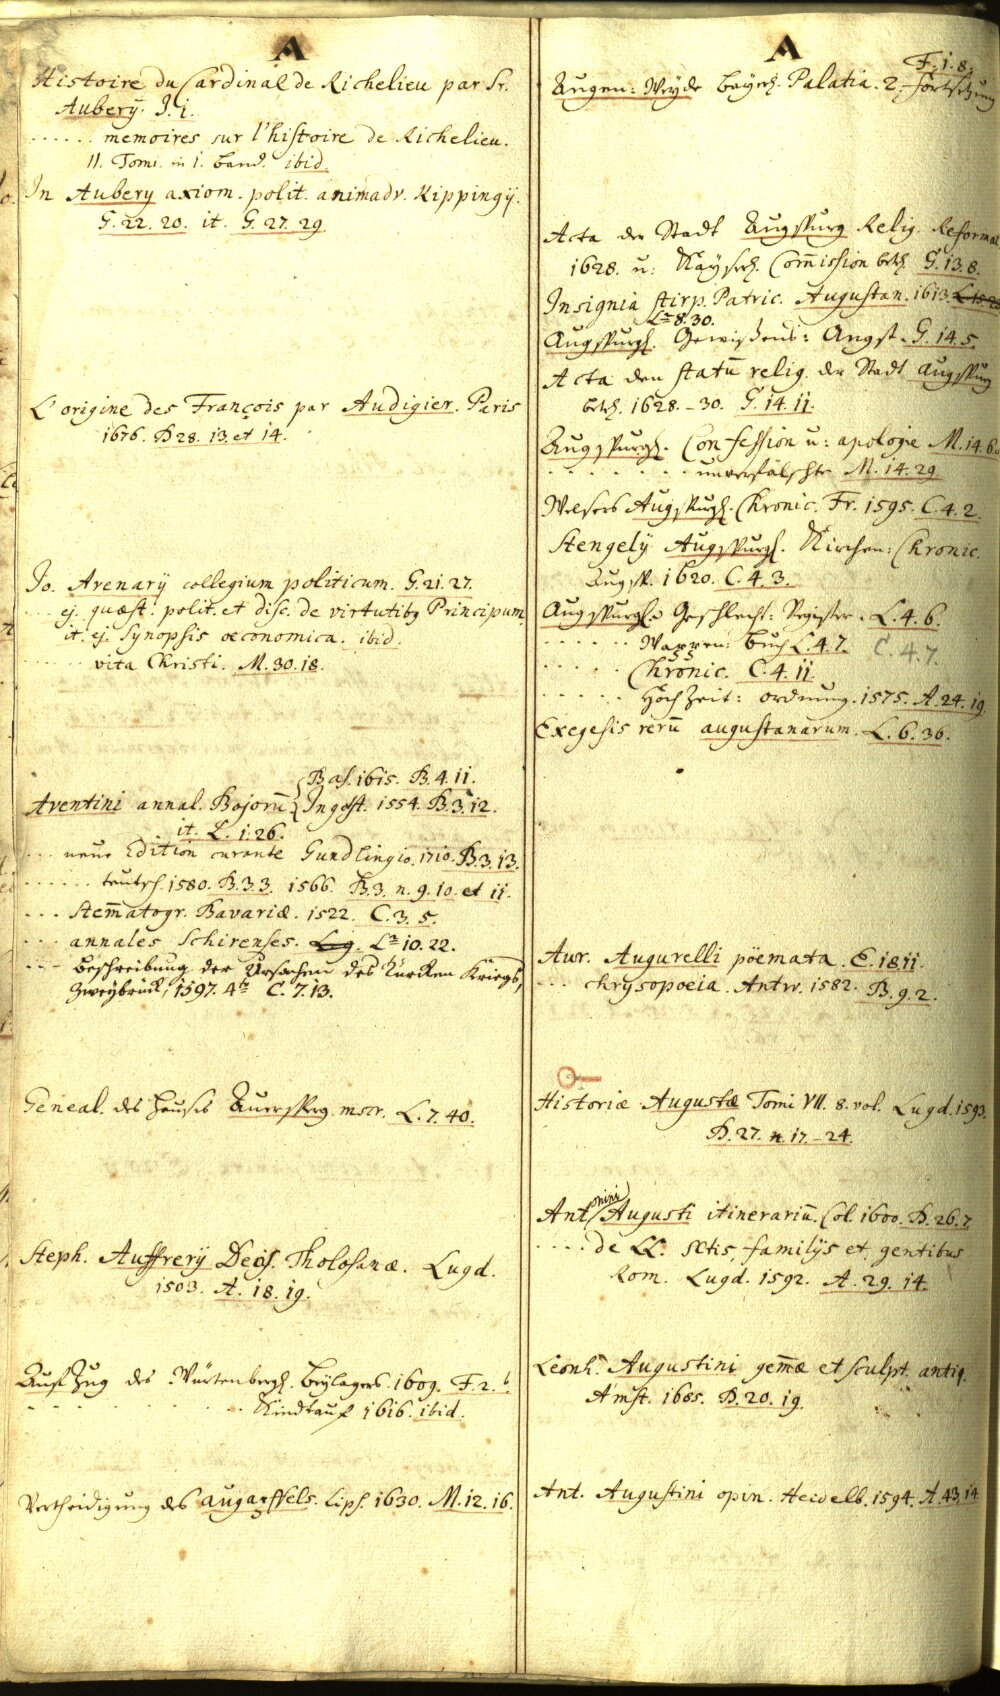 A
Histoire du Cardinal de Richelieu par Sr.
Aubery. J. i.
...... memoires sur l'histoire de Richelieu.
II. Tomi. in i. band. ibid.
In Aubery axiom. polit. animadv. Kippingij.
G. 22. 20. it. G. 27. 29
L'origine des François par Audigier. Paris
1676. D 28. 13. et 14.
Jo. Avenarij collegium politicum. G. 21. 27.
... ej. quæst. polit. et disc. de virtutibq Principum
it. ej. Synopsis œconomica. ibid.
...... vita Christi. M. 30. 18.
{Bas. 1615. B. 4. 11.
Aventini annal. Bojorū { Ingolst. 1554. B. 3. 12.
it. L. i. 26.
... neue Edition curante Gundlingio. 1710. B. 3. 13.
...... teutsch. 1580. B. 3. 3. 1566. B. 3. n. 9. 10. et ii.
... Stem̄atogr. Bavariæ. 1522. C. 3. 5.
... annales Schirenses. L. 10. 22.
... Beschreibung der Ursachen des Türcken Kriegs,
Zweÿbrück, 1597. 4to C. 7. 13.
Geneal. des Hauses Auersperg. mscr. L. 7. 40.
Steph. Auffrerij Decis. Tholosanæ. Lugd.
1503. A. 18. 19.
Auf Zug des Würtenbergl. Beÿlagers. 1609. F. 2. 6
. . . . . . . . Kindtauf 1616. ibid.
Vertheidigung des augapffels. Lips. 1630. M. 12. 16.
A
F. i. 8.
Augen: Weyde Baÿris. Palatia. 2. Fortsetzung
Acta der Stadt Augspurg Relig. Reformat
1628. u: Kaÿserl. Com̄ission betr. G. 13. 8.
Insignia stirp. Patric. Augustan. 1613.
L. 8. 30.
Augspurgl. Gewissens: Angst. G. 14. 5.
Acta den statū relig. der Stadt Augspurg
betr. 1628.-30. G. 14. ii.
Augspurgl. Confession u: apologie M. 14. 6.
...... unverfälschte M. 14. 29.
Welsers Augspurgl. Chronic. Fr. 1595. C. 4. 2.
Stengelij Augspurgl. Kirchen: Chronic.
Augsp. 1620. C. 4. 3.
Augspurgl. Geschlecht: Register. L. 4. 6.
..... Wappen: Buch L. 4. 7. C. 4. 7.
..... Chronic. C. 4. ii.
..... Hoch Zeit: ordnung. 1575. A. 24. 19
Exegesis rerū augustanarum. L. 6. 36.
Aur. Augurelli pöemata. E. 18. 11.
... chrysopoeia. Antw. 1582. B. 9. 2.
Historiæ Augustæ Tomi VII. 8. vol. Lugd. 1593.
D. 27. n. 17.-24.
Antonini Augusti itinerariū. Col. 1600. D. 26. 7
.... de LL. SCtis, familijs et gentibus
Rom. Lugd. 1592. A. 29. 14.
Leonh. Augustini gem̄æ et sculpt. antiq.
Amst. 1685. D. 20. 19.
Ant. Augustini opin. Heidelb. 1594. A. 43. 14.